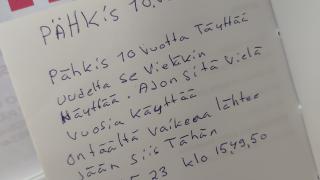 PÄHKIS 10.V
Pähkis 10 vuotta täyttää
uudelta se vieläkin
näyttää. Ajon sitä vielä
vuosia käyttää
on täältä vaikeaa lähtee
jään siis tähän
23 klo 15,49,50